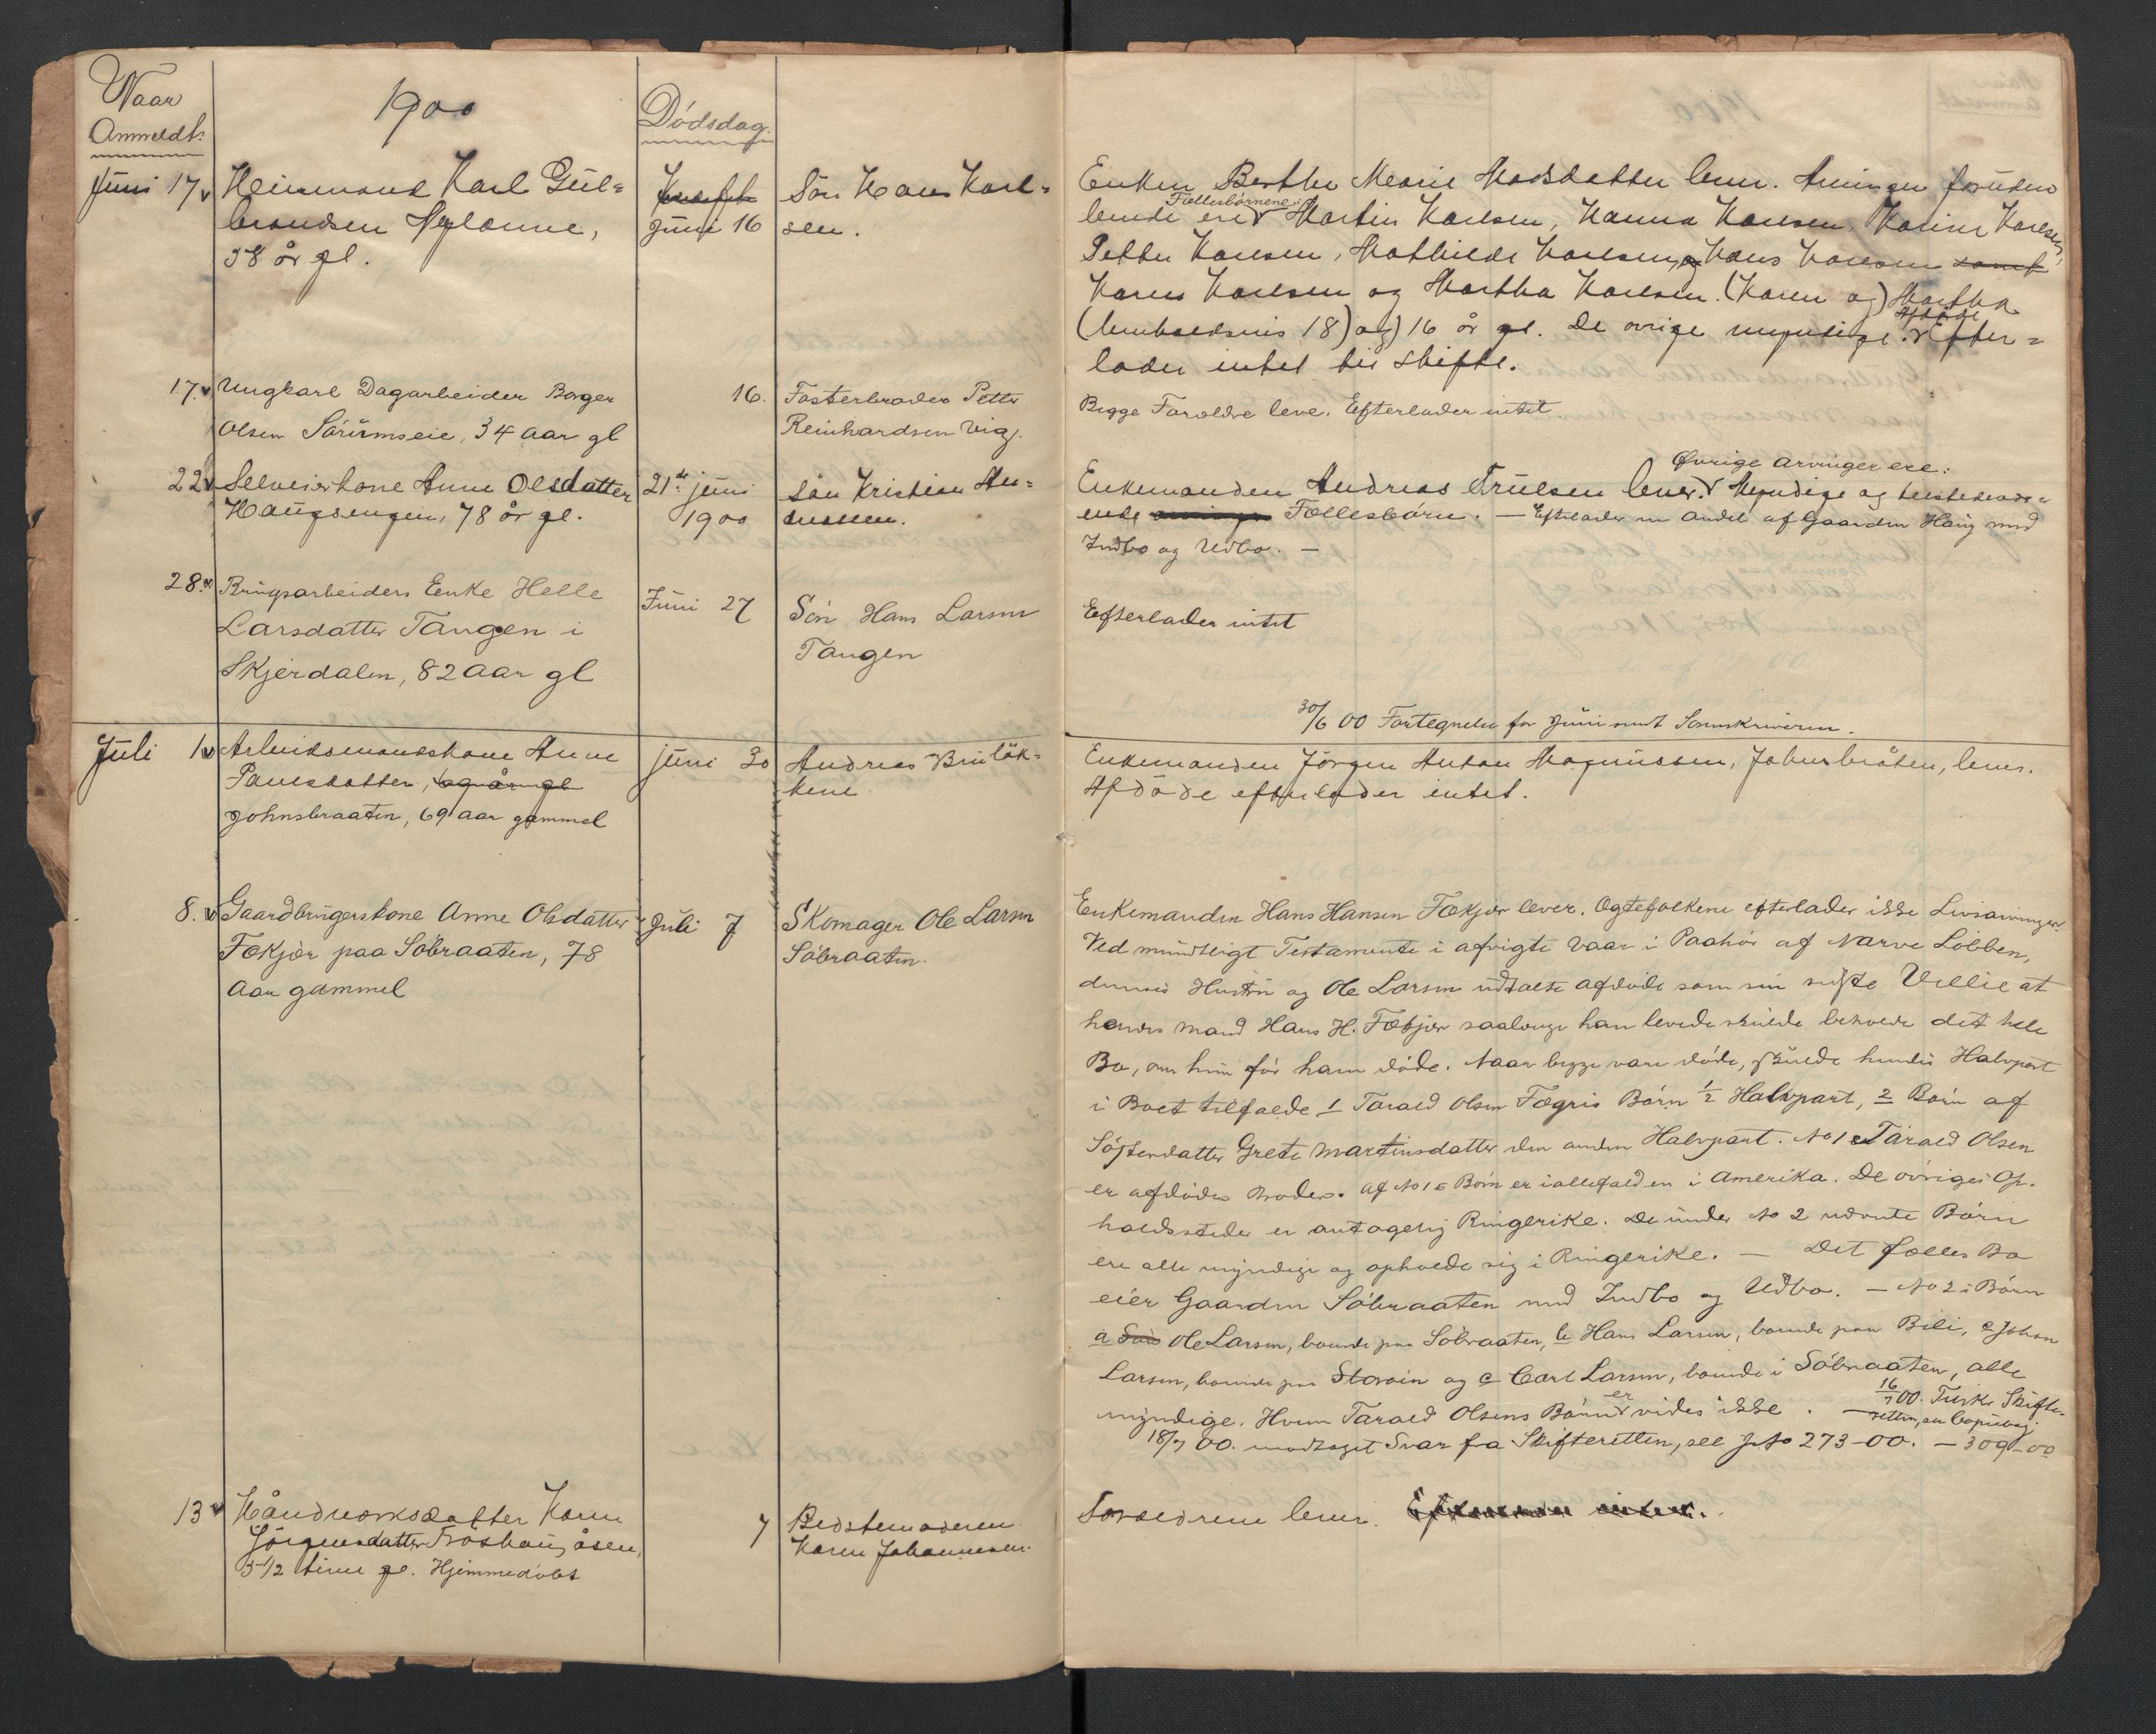 Naar
Anmeldt:
1900
Dödsdag.
Juni 17
Heiemand Karl Gul=
brandsen
58 år gl.
Juni 16
Sön Hans Karl=
sen.
Enken Berthe Marie Madsdatter lever. Arvinger foruden
Fællesbörnene:
levende ere Martin Karlsen, Hanna Karlsen, Karine Karlsen,
Petter Karlsen, Mathilde Karlsen, og Hans Karlsen samt
Karen Karlsen og Martha Karlsen. (Karen og) Martha
Afdöde
(henholdsvis 18) og) 16 år gl. De övrige myndige. Efter=
lader intet til skifte.
17. Ungkarl Dagarbeider Borger
Olsen Sörumseie, 34 Aar gl
16.
Fosterbroder Petter
Reinhardsen Vig.
Begge Foreldre leve. Efterlader intet.
22 Selveierkone Anne Olsdatter
Haugsengen, 78 år gl.
21de juni
1900
Sön Kristian An=
dreasen.
Övrige Arvinger ere:
Enkemanden Andreas Trulsen lever. Myndige og tilstedevær=
ende Fællesbörn. — Efterlader en Andel af Gaarden Haug med
Indbo og Udbo. —
28. Brugsarbeiders Enke Helle
Larsdatter Tangen i
Skjerdalen, 82 Aar gl
Juni 27
Sön Hans Larsen
Tangen
Efterlader intet
30/6 00 Fortegnelse for Juni sendt Sorenskriveren.
Juli 1
Arbeidsmandskone Anne
Paulsdatter,
Johnsbraaten, 69 aar gammel
juni 30
Andreas Bruløk=
kene
Enkemanden Jörgen Anton Magnussen, Johnsbråten, lever.
Afdöde efterlader intet.
8. Gaardbrugerskone Anne Olsdatter
Fækjær paa Söbraaten, 78
Aar gammel
Juli 7
Skomager Ole Larsen
Söbraaten.
Enkemanden Hans Hansen Fækjær lever. Ægtefolkene efterlader ikke Livsarvinger
Ved mundtligt Testamente i afvigte Vaar i Paahör af Narve Löbben,
dennes Hustru og Ole Larsen udtalte afdöde som sin sidste Villie at
hendes Mand Hans H. Fækjær saalænge han levede skulde beholde det hele
Bo, om hun för ham döde. Naar begge vare döde, skulde hendes Halvpart
i Boet tilfalde 1 Tarald Olsen Fægris Börn ½ Halvpart, 2 Börn af
Sösterdatter Grete Martinsdatter den anden Halvpart. No 1 Tarald Olsen
er afdödes Broder. Af No 1s Börn er iallefald en i Amerika. De övriges Op-
holdssteder er antagelig Ringerike. De under No 2 nævnte Börn
ere alle myndige og opholde sig i Ringerike. — Det fælles Bo
eier Gaarden Söbraaten med Indbo og Udbo. — No 2s Börn
a Ole Larsen, boende paa Söbraaten, b Hans Larsen, boende paa Bili, c Johan
Larsen, boende paa Storöin og c Carl Larsen, boende i Söbraaten, alle
myndige. Hvem Tarald Olsens Börn er vides ikke. — 16/7 00. Tilskr. Skifte-
retten, se Copiebog.
18/7 00. modtaget Svar fra Skifteretten, see J. No 273-00. — 309-00
13 Håndværksdatter Karen
Jörgensdatter Fröshaugåsen,
5 1/2 time gl. Hjemmedöbt
7
Bedstemoderen
Karen Johannesen.
Forældrene lever.